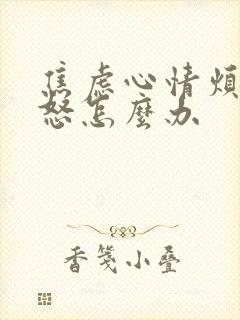 焦虑心情烦
怒怎麼办
香笺小叠